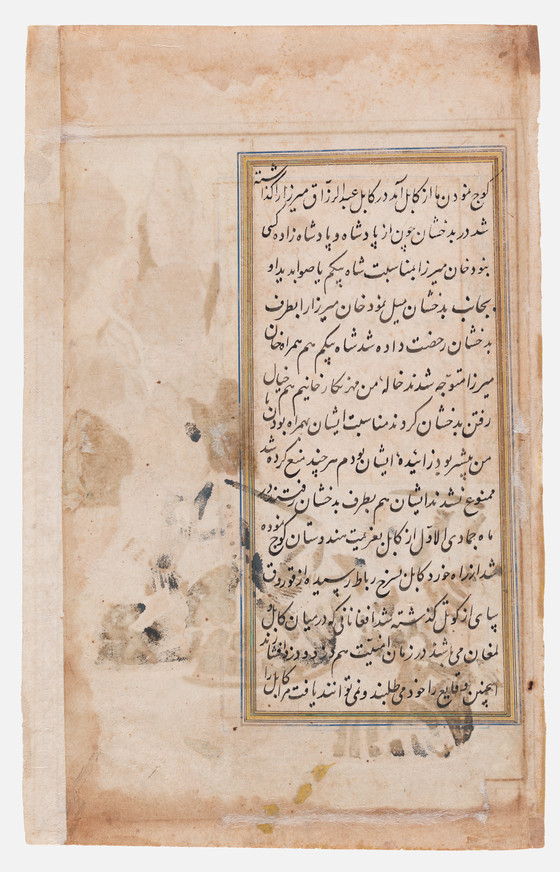 کوچ نمودن ما از کابل آمد در کابل عبدالرزّاق میرزا را گذاشته
شد در بدخشان چون از پادشاه و پادشاه زاده کسی
نبود خان میرزا بمناسبت شاه بیکم یا صوابدید او
بجانب بدخشان میل نمود خان میرزا را بطرف
بدخشان رخصت داده شد شاه بیکم هم همراه خان
میرزا متوجّه شدند خاله من مهر نکار خانیم هم خیال
رفتن بدخشان کردند مناسبت ایشان بهمراه بودن ما
من بیشتر بود زائیده ایشان بودم هر چند منع کرده شد
ممنوع نشدند ایشان هم بطرف بدخشان رفتند در
ماه جمادی الاوّل از کابل بعزیمت هندوستان کوچ نموده
شد از راه خورد کابل بسرخ رباط رسیده از توروق
سای از کوتل کذشته شد افغانانی که در میان کابل و
لمغان می باشند در زمان امنیّت هم دزد و دزد افشارند
اینچنین وقایع را خود می طلبند و نمی توانند یافت مرا کابل را